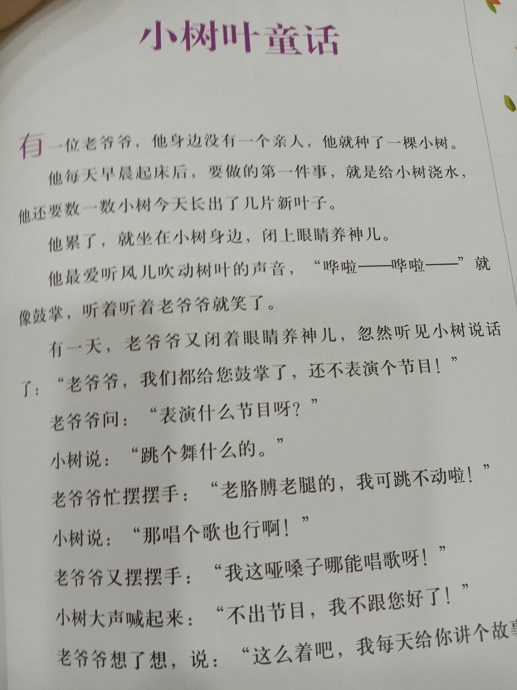 小树叶童话
有一位老爷爷，他身边没有一个亲人，他就种了一棵小树。
他每天早晨起床后，要做的第一件事，就是给小树浇水，
他还要数一数小树今天长出了几片新叶子。
他累了，就坐在小树身边，闭上眼睛养神儿。
他最爱听风儿吹动树叶的声音，“哗啦——哗啦——”就
像鼓掌，听着听着老爷爷就笑了。
有一天，老爷爷又闭着眼睛养神儿，忽然听见小树说话
了：“老爷爷，我们都给您鼓掌了，还不表演个节目！”
老爷爷问：“表演什么节目呀？”
小树说：“跳个舞什么的。”
老爷爷忙摆摆手：“老胳膊老腿的，我可跳不动啦！”
小树说：“那唱个歌也行啊！”
老爷爷又摆摆手：“我这哑嗓子哪能唱歌呀！”
小树大声喊起来：“不出节目，我不跟您好了！”
老爷爷想了想，说：“这么着吧，我每天给你讲个故事